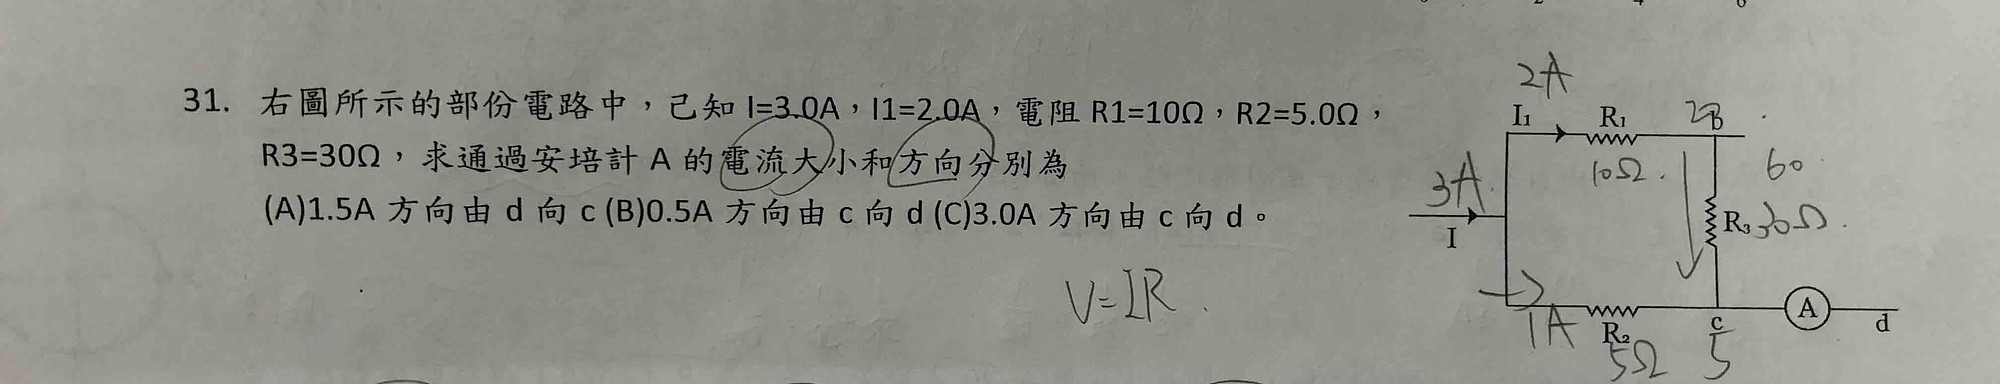 31. 右圖所示的部份電路中，己知 I=3.0A，I1=2.0A，電阻 R1=10Ω，R2=5.0Ω，
R3=30Ω，求通過安培計 A 的電流大小和方向分別為
(A)1.5A 方向由 d 向 c (B)0.5A 方向由 c 向 d (C)3.0A 方向由 c 向 d。
V=IR
2A
I₁ R₁ B
10Ω 60
3A
I
R₃ 30Ω
A
d
1A R₂ c
5Ω 5